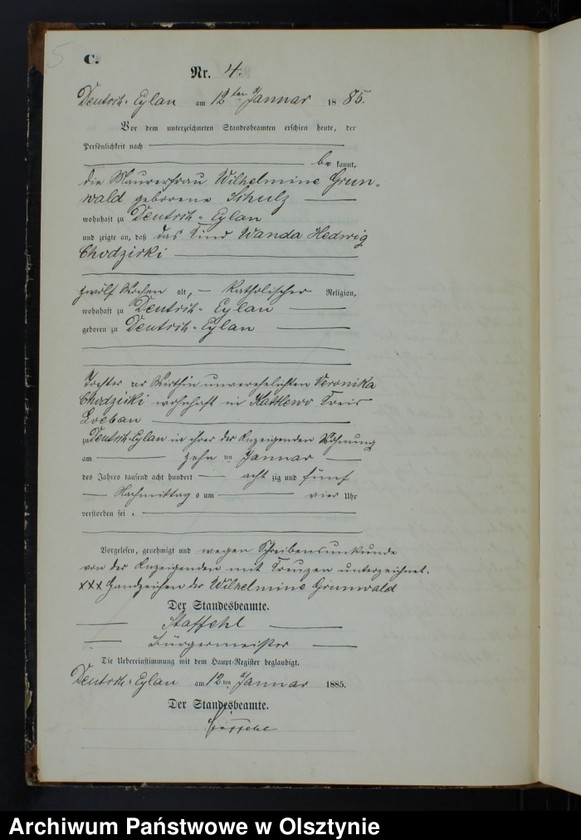 C.
Nr. 4.
Deutsch-Eylau am 12ten Januar 1885.
Vor dem unterzeichneten Standesbeamten erschien heute, der
Persönlichkeit nach
be kannt,
die Maurerfrau Wilhelmine Grun-
wald geborene Schulz
wohnhaft zu Deutsch-Eylau
und zeigte an, daß das Kind Wanda Hedwig
Chodzicki
zwölf Wochen alt, katholischer Religion,
wohnhaft zu Deutsch-Eylau
geboren zu Deutsch-Eylau
Tochter der Wirthin unverehelichten Veronika
Chodzicki wohnhaft in Kattlewo Kreis
Loebau
zu Deutsch-Eylau in ihrer der Anzeigenden Wohnung
am zehn ten Januar
des Jahres tausend acht hundert acht zig und fünf
Nachmittags um vier Uhr
verstorben sei.
Vorgelesen, genehmigt und wegen Schreibensunkunde
von der Anzeigenden mit Kreuzen unterzeichnet.
XXX Handzeichen der Wilhelmine Grunwald
Der Standesbeamte.
Staffehl
Bürgermeister
Die Uebereinstimmung mit dem Haupt-Register beglaubigt.
Deutsch-Eylau am 12ten Januar 1885.
Der Standesbeamte.
Staffehl
Archiwum Państwowe w Olsztynie